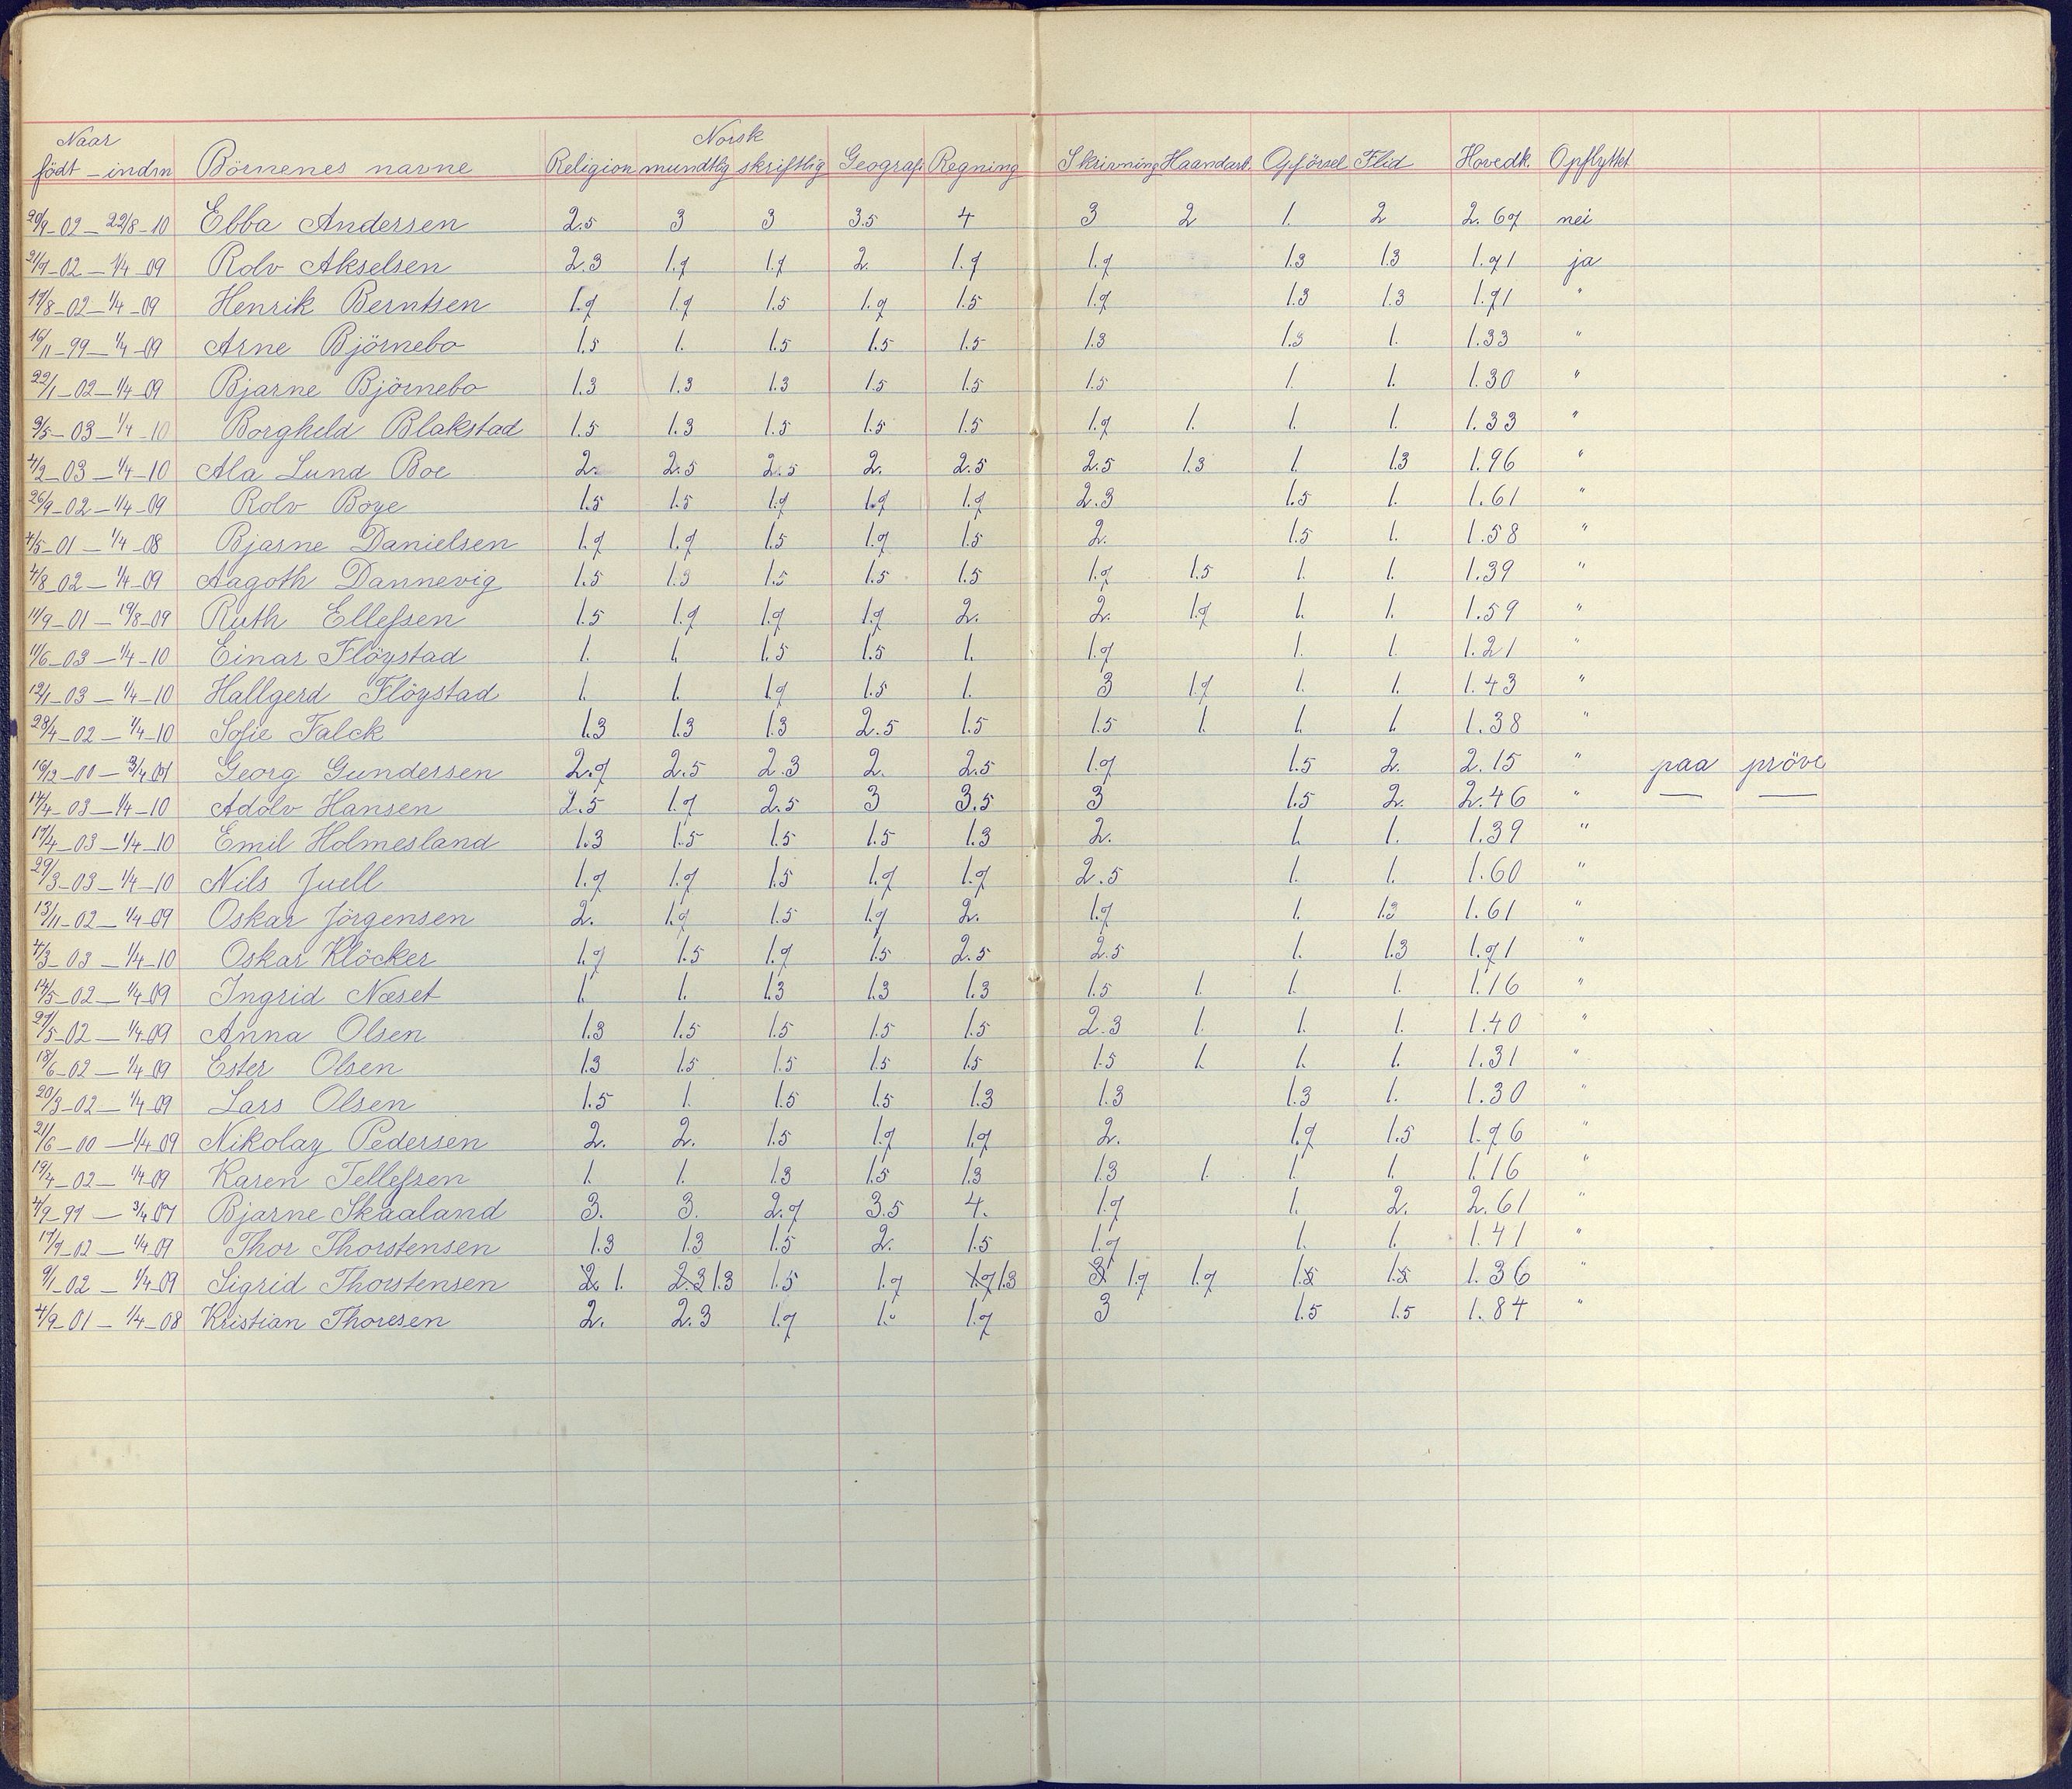 Naar Norsk
födt - indm Börnenes navne Religion mundtlig skriftlig Geografi Regning Skrivning Haandarb. Opförsel Flid Hovedk. Opflyttet
20/9-02-22/8-10 Ebba Andersen 2.5 3 3 3.5 4 3 2 1. 2 2.67 nei
21/7-02-1/4-09 Rolv Akselsen 2.3 1.7 1.7 2. 1.7 1.7 1.3 1.3 1.71 ja
17/8-02-1/4-09 Henrik Berntsen 1.7 1.7 1.5 1.7 1.5 1.7 1.3 1.3 1.71 "
16/11-99-1/4-09 Arne Björnebo 1.5 1. 1.5 1.5 1.5 1.3 1.3 1. 1.33 "
22/1-02-1/4-09 Bjarne Björnebo 1.3 1.3 1.3 1.5 1.5 1.5 1. 1. 1.30 "
3/5-03-1/4-10 Borghild Blakstad 1.5 1.3 1.5 1.5 1.5 1.7 1. 1. 1. 1.33 "
4/2-03-1/4-10 Ala Lund Boe 2. 2.5 2.5 2. 2.5 2.5 1.3 1 1.3 1.96 "
26/9-02-1/4-09 Rolv Boye 1.5 1.5 1.7 1.7 1.7 2.3 1.5 1. 1.61 "
4/5-01-1/4-08 Bjarne Danielsen 1.7 1.7 1.5 1.7 1.5 2. 1.5 1. 1.58 "
4/8-02-1/4-09 Aagoth Dannevig 1.5 1.3 1.5 1.5 1.5 1.7 1.5 1. 1. 1.39 "
11/9-01-19/8-09 Ruth Ellefsen 1.5 1.7 1.7 1.7 2. 2. 1.7 1. 1. 1.59 "
11/6-03-1/4-10 Einar Flöystad 1. 1. 1.5 1.5 1. 1.7 1. 1. 1.21 "
12/1-03-1/4-10 Hallgerd Flöystad 1. 1. 1.7 1.5 1. 3 1.7 1. 1. 1.43 "
28/4-02-1/4-10 Sofie Falck 1.3 1.3 1.3 2.5 1.5 1.5 1. 1. 1. 1.38 "
16/12-00-3/4-07 Georg Gundersen 2.7 2.5 2.3 2. 2.5 1.7 1.5 2. 2.15 " paa pröve
14/4-03-1/4-10 Adolv Hansen 2.5 1.7 2.5 3 3.5 3 1.5 2. 2.46 " — —
17/4-03-1/4-10 Emil Holmesland 1.3 1.5 1.5 1.5 1.3 2. 1. 1. 1.39 "
29/3-03-1/4-10 Nils Juell 1.7 1.7 1.5 1.7 1.7 2.5 1. 1. 1.60 "
13/11-02-1/4-09 Oskar Jörgensen 2. 1.7 1.5 1.7 2. 1.7 1. 1.3 1.61 "
4/3-03-1/4-10 Oskar Klöcker 1.7 1.5 1.7 1.5 2.5 2.5 1. 1.3 1.71 "
14/5-02-1/4-09 Ingrid Næset 1. 1. 1.3 1.3 1.3 1.5 1. 1. 1. 1.16 "
27/5-02-1/4-09 Anna Olsen 1.3 1.5 1.5 1.5 1.5 2.3 1. 1. 1. 1.40 "
18/6-02-1/4-09 Ester Olsen 1.3 1.5 1.5 1.5 1.5 1.5 1. 1. 1. 1.31 "
20/3-02-1/4-09 Lars Olsen 1.5 1. 1.5 1.5 1.3 1.3 1.3 1. 1.30 "
21/6-00-1/4-09 Nikolay Pedersen 2. 2. 1.5 1.7 1.7 2. 1.7 1.5 1.76 "
19/4-02-1/4-09 Karen Tellefsen 1. 1. 1.3 1.5 1.3 1.3 1. 1. 1. 1.16 "
4/9-97-3/4-07 Bjarne Skaaland 3. 3. 2.7 3.5 4. 1.7 1. 2. 2.61 "
17/7-02-1/4-09 Thor Thorstensen 1.3 1.3 1.5 2. 1.5 1.7 1. 1. 1.41 "
9/1-02-1/4-09 Sigrid Thorstensen 2. 1. 2.3 1.3 1.5 1.7 1.7 1.3 3 1.7 1.7 1.5 1.5 1.36 "
4/9-01-1/4-08 Kristian Thoresen 2. 2.3 1.7 1. 1.7 3 1.5 1.5 1.84 "